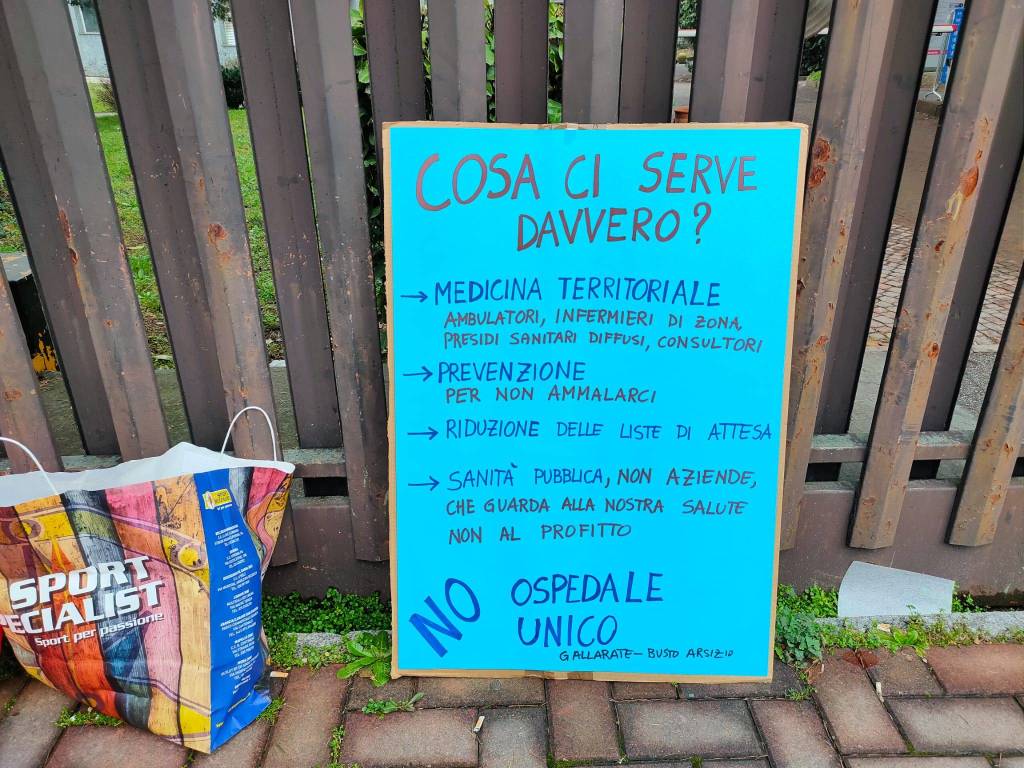 COSA CI SERVE
DAVVERO?
→ MEDICINA TERRITORIALE
AMBULATORI, INFERMIERI DI ZONA,
PRESIDI SANITARI DIFFUSI, CONSULTORI
→ PREVENZIONE
PER NON AMMALARCI
→ RIDUZIONE DELLE LISTE DI ATTESA
→ SANITÀ PUBBLICA, NON AZIENDE,
CHE GUARDA ALLA NOSTRA SALUTE
NON AL PROFITTO
NO OSPEDALE
UNICO
GALLARATE - BUSTO ARSIZIO
SPORT
PECIALIST
Sport per passione